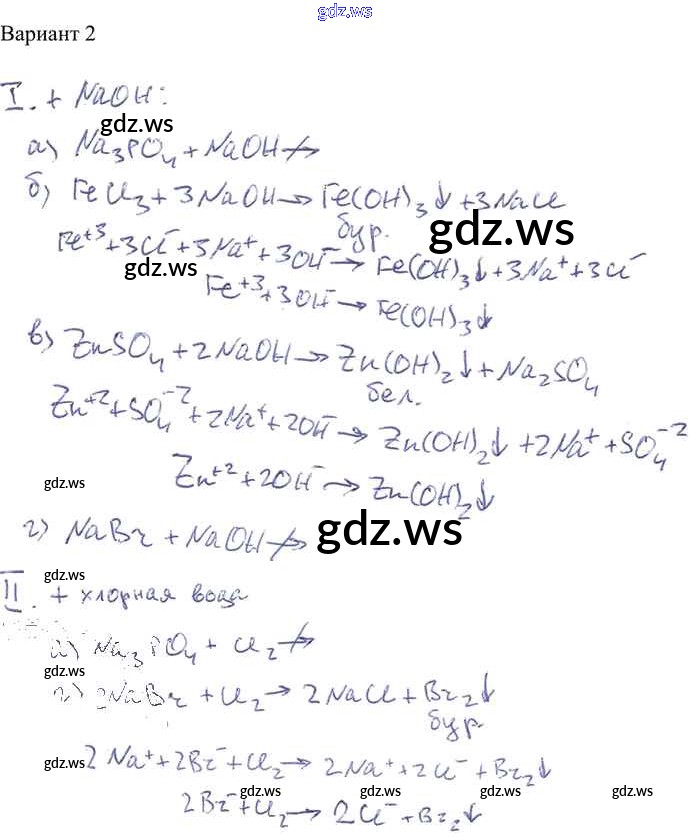 gdz.ws
Вариант 2
I. + NaOH:
gdz.ws
а) Na₃PO₄ + NaOH ↛
б) FeCl₃ + 3NaOH → Fe(OH)₃↓ + 3NaCl
бур.
gdz.ws
Fe⁺³ + 3Cl⁻ + 3Na⁺ + 3OH⁻ → Fe(OH)₃↓ + 3Na⁺ + 3Cl⁻
gdz.ws
Fe⁺³ + 3OH⁻ → Fe(OH)₃↓
в) ZnSO₄ + 2NaOH → Zn(OH)₂↓ + Na₂SO₄
бел.
Zn⁺² + SO₄⁻² + 2Na⁺ + 2OH⁻ → Zn(OH)₂↓ + 2Na⁺ + SO₄⁻²
Zn⁺² + 2OH⁻ → Zn(OH)₂↓
gdz.ws
г) NaBr + NaOH ↛
gdz.ws
gdz.ws
II. + хлорная вода
а) Na₃PO₄ + Cl₂ ↛
gdz.ws
г) 2NaBr + Cl₂ → 2NaCl + Br₂↓
бур.
2Na⁺ + 2Br⁻ + Cl₂ → 2Na⁺ + 2Cl⁻ + Br₂↓
gdz.ws
2Br⁻ + Cl₂ → 2Cl⁻ + Br₂↓
gdz.ws
gdz.ws
gdz.ws